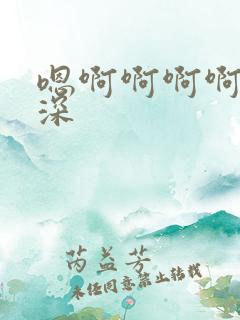 嗯啊啊啊啊
深
芮益芳
未经同意禁止转载